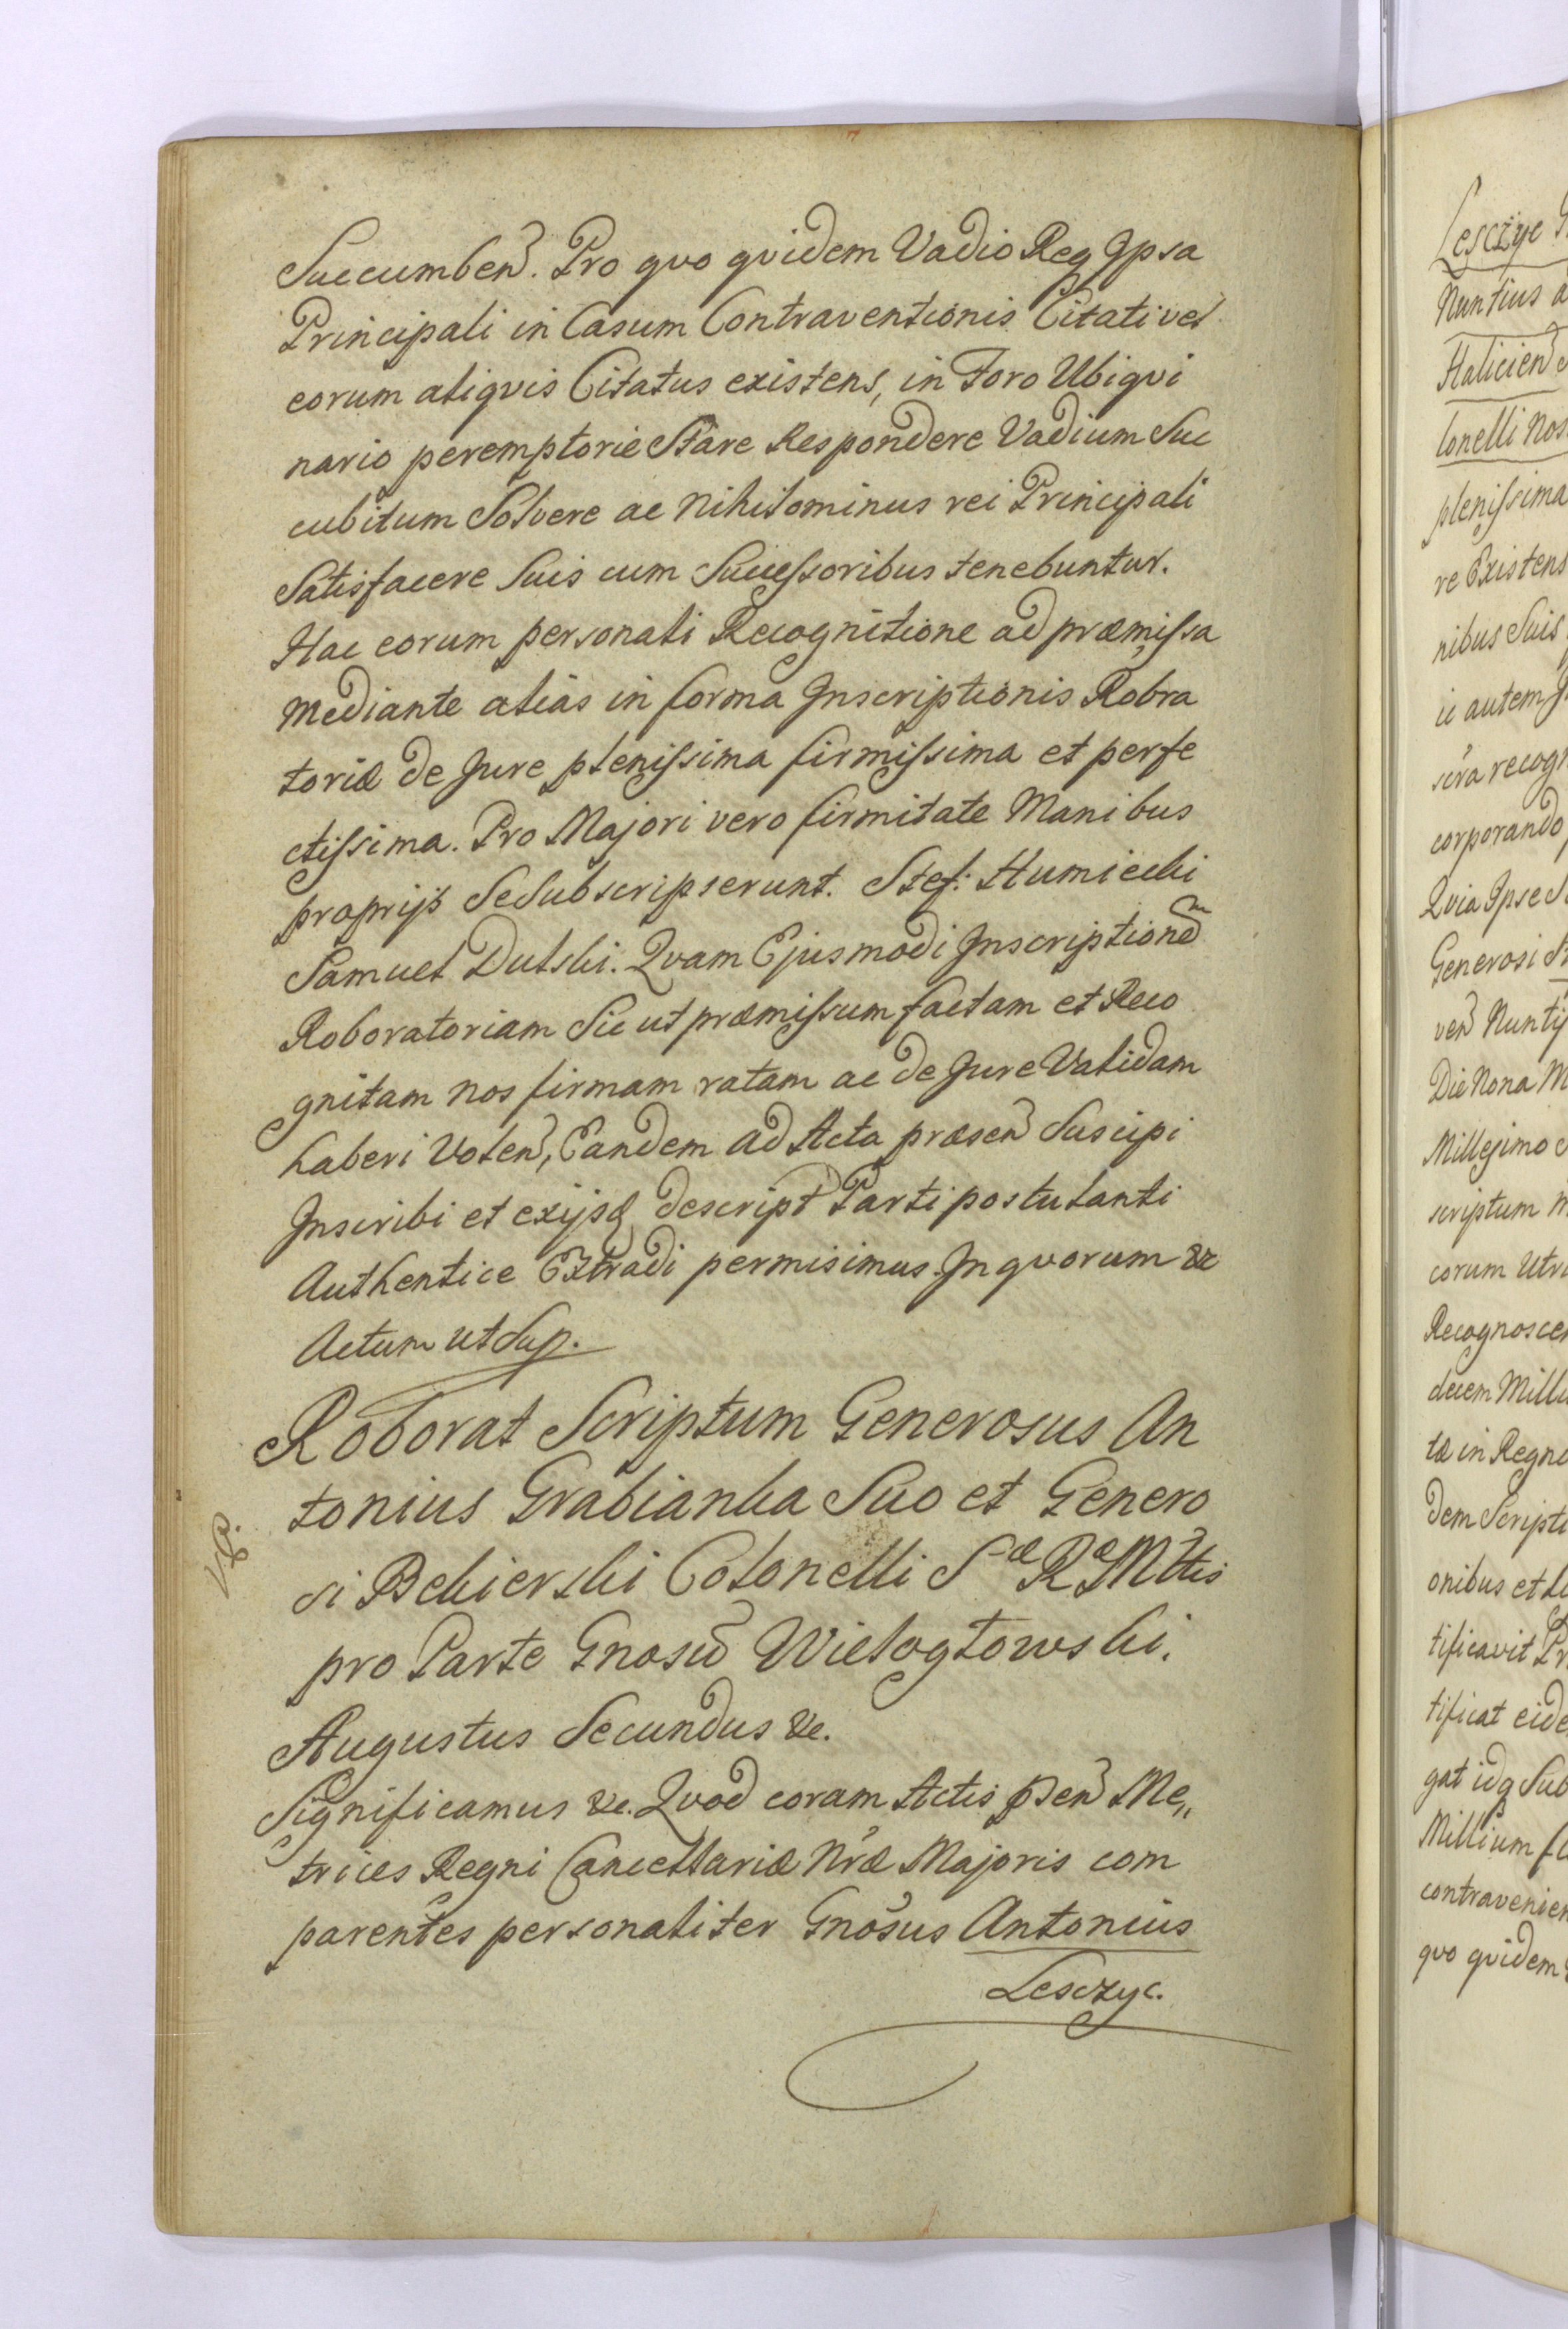 Succumben. Pro quo quidem Vadio Req Ipsa
Principali in Casum Contraventionis Citati vel
eorum aliquis Citatus existens, in Foro Ubiqui
nario peremptorie Stare Respondere Vadium Suc
cubitum Solvere ac Nihilominus rei Principali
Satisfacere Suis cum Successoribus tenebuntur.
Hac eorum personali Recognitione ad præmissa
Mediante alias in forma Inscriptionis Robra
toriæ de Jure plenissima firmissima et perfe
ctissima. Pro Majori vero firmitate Manibus
proprijs Se Subscripserunt. Stef: Humiecki
Samuel Dulski. Qvam Ejusmodi Inscriptionem
Roboratoriam Sic ut præmissum factam et Reco
gnitam nos firmam ratam ac de Jure Validam
haberi Volen, Eandem ad Acta præsen Suscipi
Inscribi et exijsq descript Parti postulanti
Authentice Extradi permisimus. In quorum &c
Actum ut Sup.
Roborat Scriptum Generosus An
tonius Grabianka Suo et Genero
si Bekierski Colonelli Sæ Ræ Mttis
pro Parte Gnosi Wielogłowski.
Augustus Secundus &c.
Significamus &c. Qvod coram Actis psen Me„
trices Regni Cancellariæ Nræ Majoris com
parentes personaliter Gnosus Antonius
Lesczyc.
Lesczyc
Nuntius
Halicien
lonelli Nos
plenissima
re Existens
nibus Suis
ii autem
scra recogn
corporando
Qvia Ipse
Generosi
ven Nuntij
Die Nona M
Millesimo
scriptum
corum Utri
Recognoscen
decem Milli
tæ in Regni
dem Scripti
onibus et
tificavit
tificat eide
gat idq Sub
Millium
contravenien
quo quidem